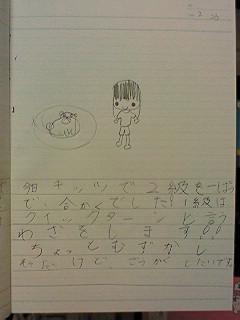 今日 キッツで 2級を一ぱつ
で、合かくでした! 1級は
クイックターンと言う
わざをします!!
ちょっとむずかし
そうだけど、ごうかくしたいです。